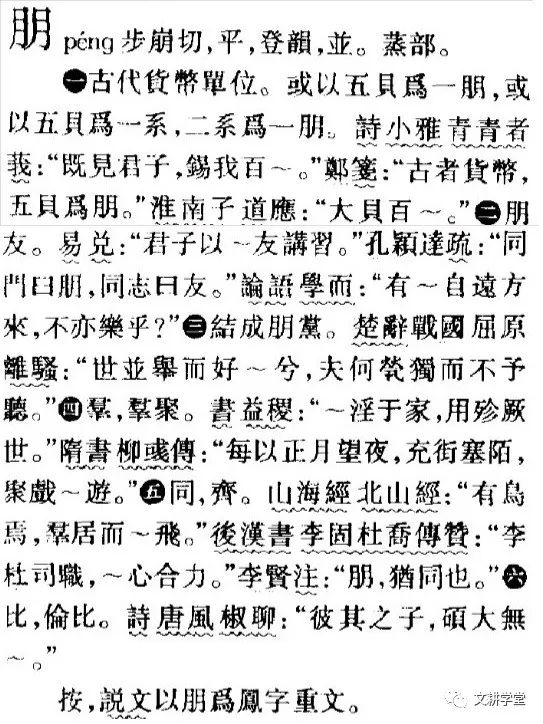 朋 péng 步崩切，平，登韻，並。蒸部。
㊀古代貨幣單位。或以五貝爲一朋，或
以五貝爲一系，二系爲一朋。詩小雅菁菁者
莪：“既見君子，錫我百～。”鄭箋：“古者貨幣，
五貝爲朋。”淮南子道應：“大貝百～。”㊁朋
友。易兌：“君子以～友講習。”孔穎達疏：“同
門曰朋，同志曰友。”論語學而：“有～自遠方
來，不亦樂乎？”㊂結成朋黨。楚辭戰國屈原
離騷：“世並舉而好～兮，夫何煢獨而不予
聽。”㊃羣，羣聚。書益稷：“～淫于家，用殄厥
世。”隋書柳彧傳：“每以正月望夜，充街塞陌，
聚戲～遊。”㊄同，齊。山海經北山經：“有鳥
焉，羣居而～飛。”後漢書李固杜喬傳贊：“李
杜司職，～心合力。”李賢注：“朋，猶同也。”㊅
比，倫比。詩唐風椒聊：“彼其之子，碩大無
～。”
按，説文以朋爲鳳字重文。
文耕学堂